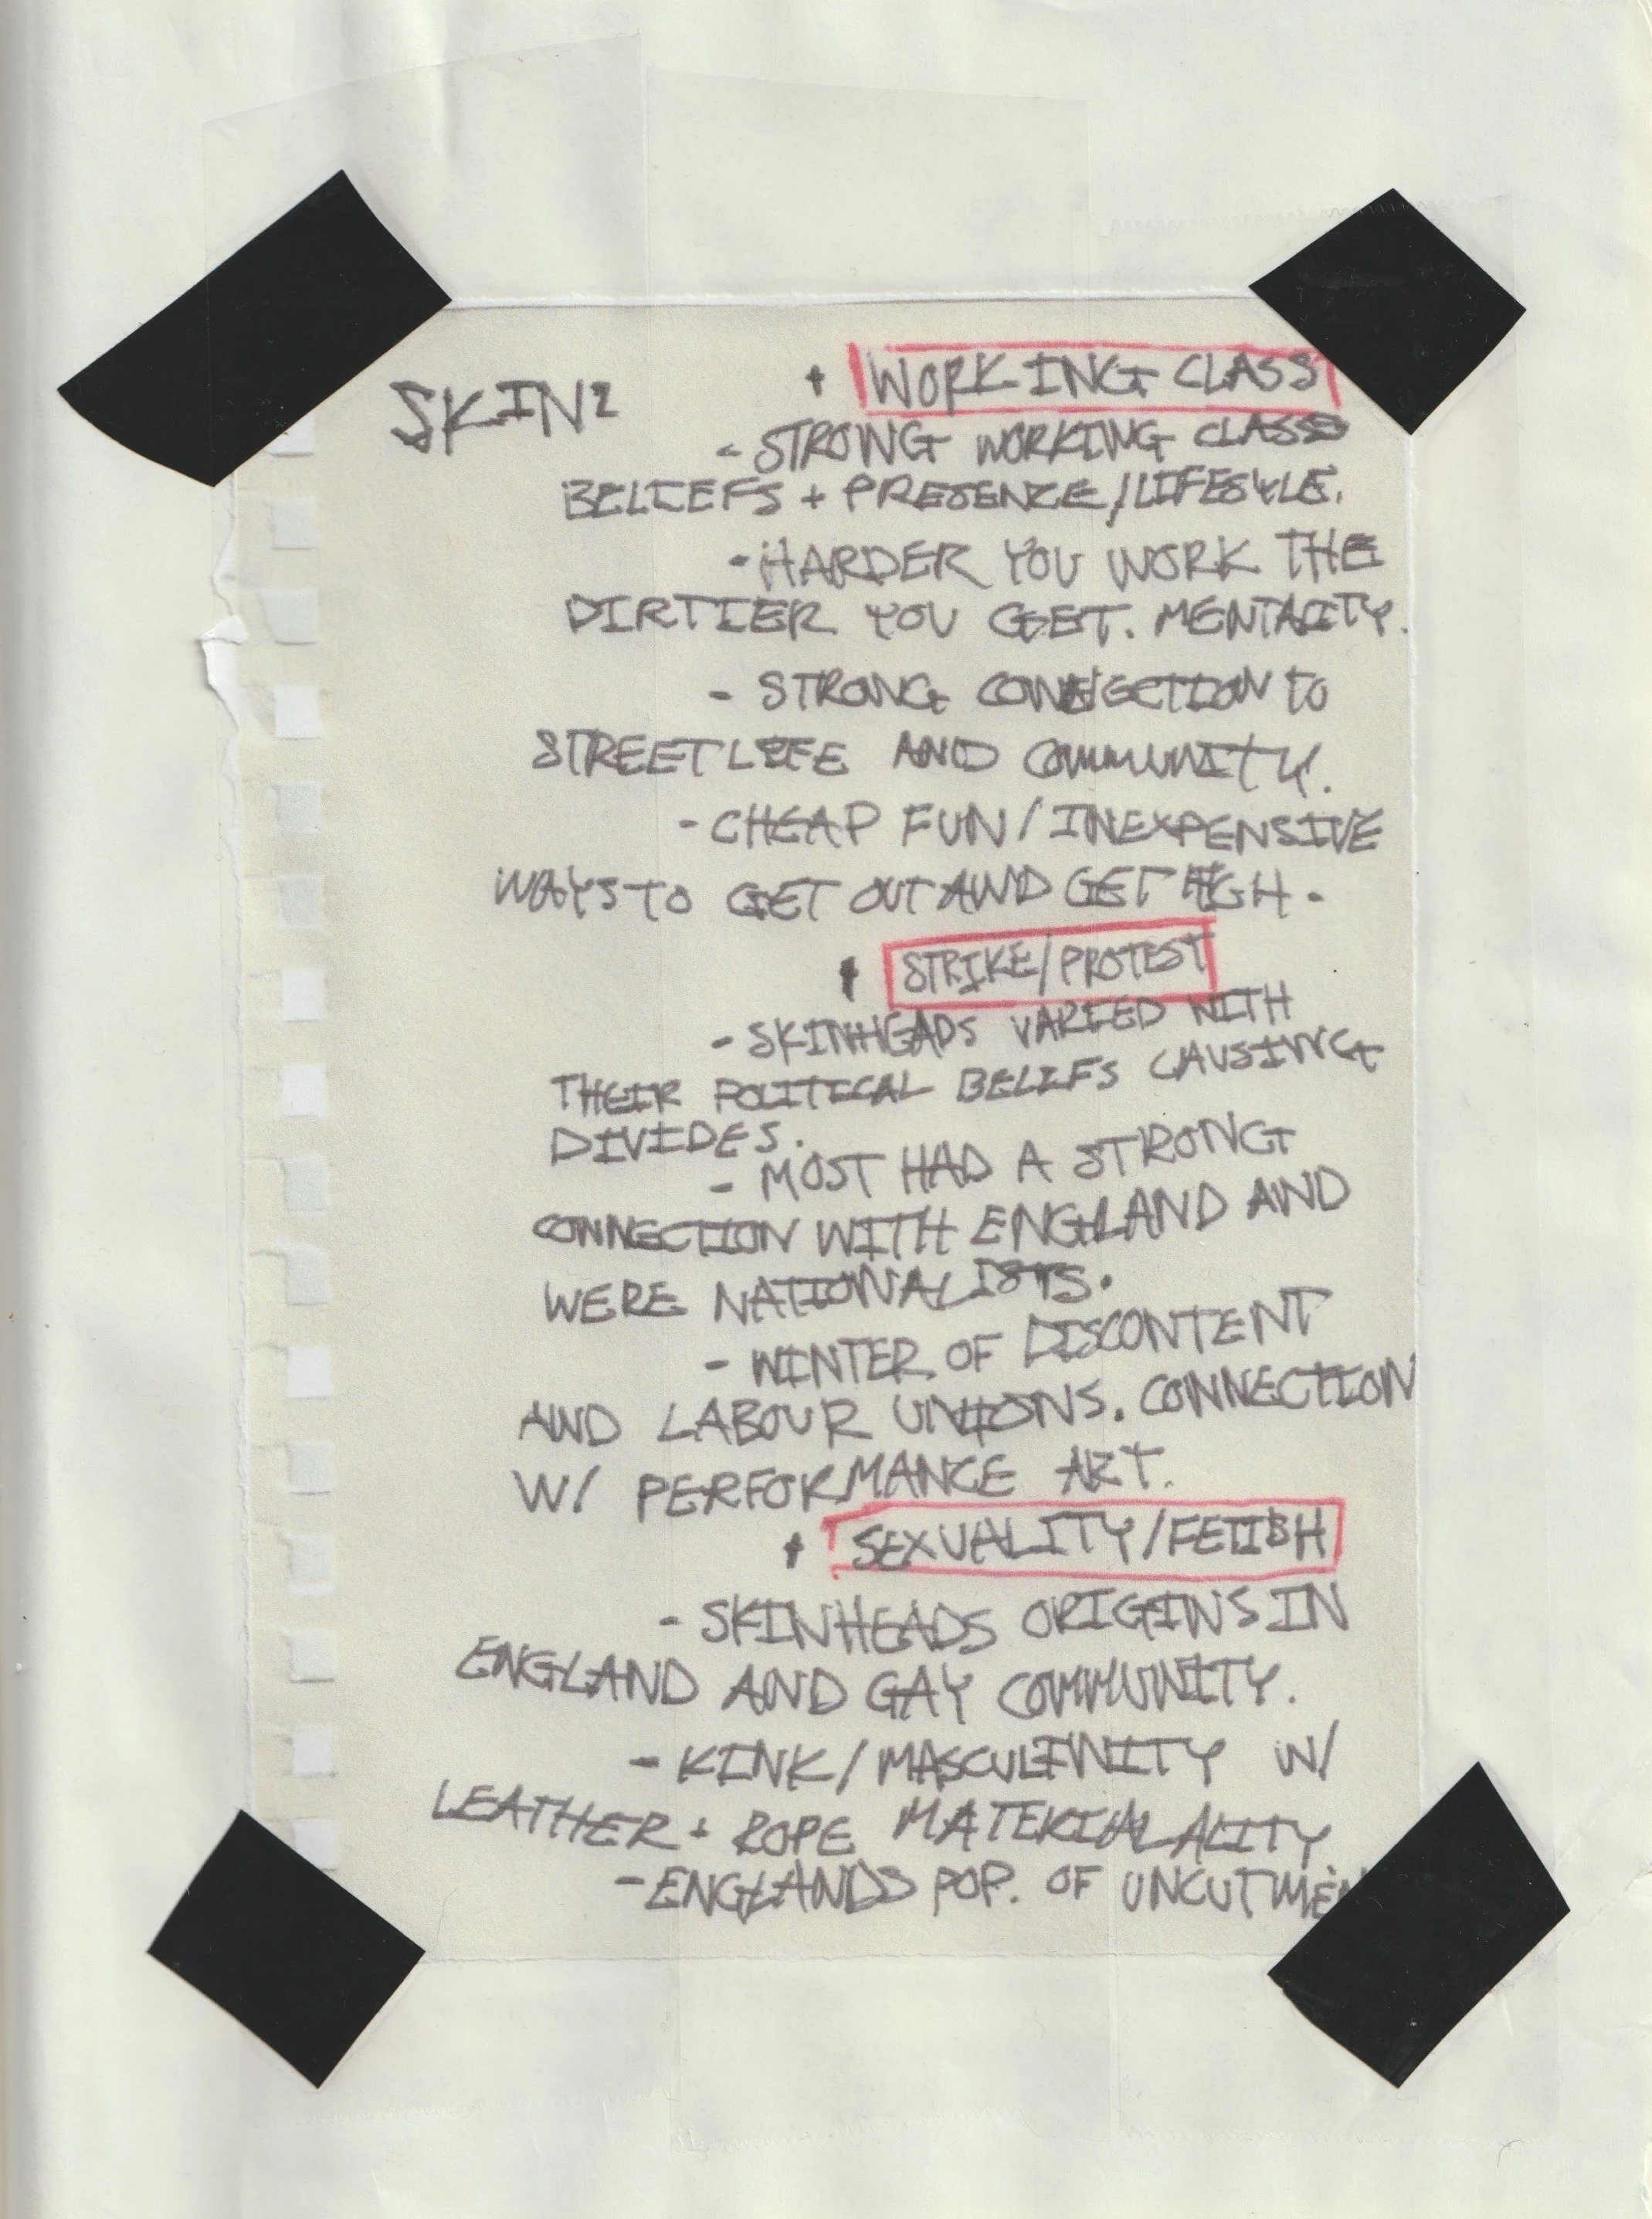 SKIN²
+ WORKING CLASS
- STRONG WORKING CLASS
BELIEFS + PRESENCE/LIFESTYLE.
- HARDER YOU WORK THE
DIRTIER YOU GET. MENTALITY.
- STRONG CONNECTION TO
STREET LIFE AND COMMUNITY.
- CHEAP FUN/INEXPENSIVE
WAYS TO GET OUT AND GET HIGH.
+ STRIKE/PROTEST
- SKINHEADS VARIED WITH
THEIR POLITICAL BELIEFS CAUSING
DIVIDES.
- MOST HAD A STRONG
CONNECTION WITH ENGLAND AND
WERE NATIONALISTS.
- WINTER OF DISCONTENT
AND LABOUR UNIONS. CONNECTION
W/ PERFORMANCE ART.
+ SEXUALITY/FETISH
- SKINHEADS ORIGINS IN
ENGLAND AND GAY COMMUNITY.
- KINK/MASCULINITY W/
LEATHER + ROPE MATERIALALITY
- ENGLANDS POP. OF UNCUT MEN